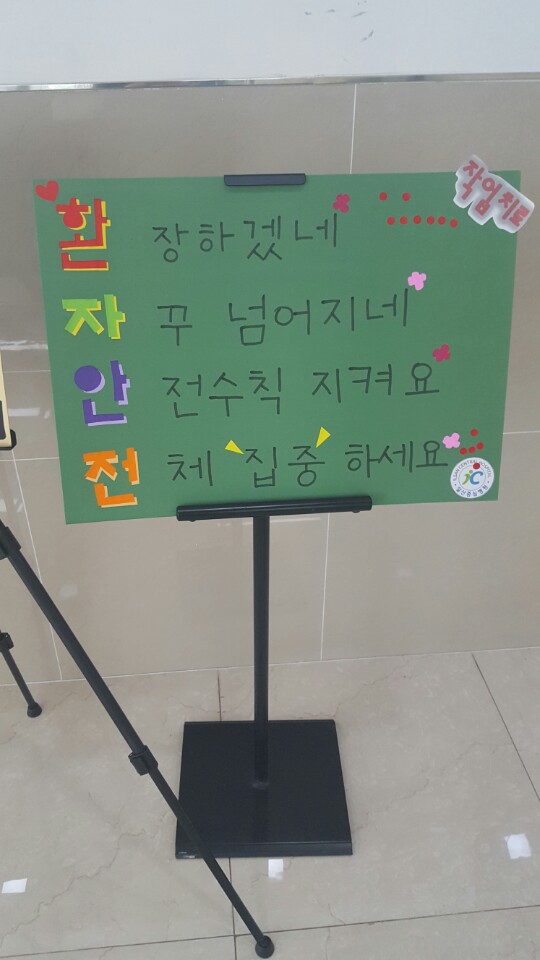 작업치료
환장하겠네
자꾸 넘어지네
안전수칙 지켜요
전체 집중 하세요